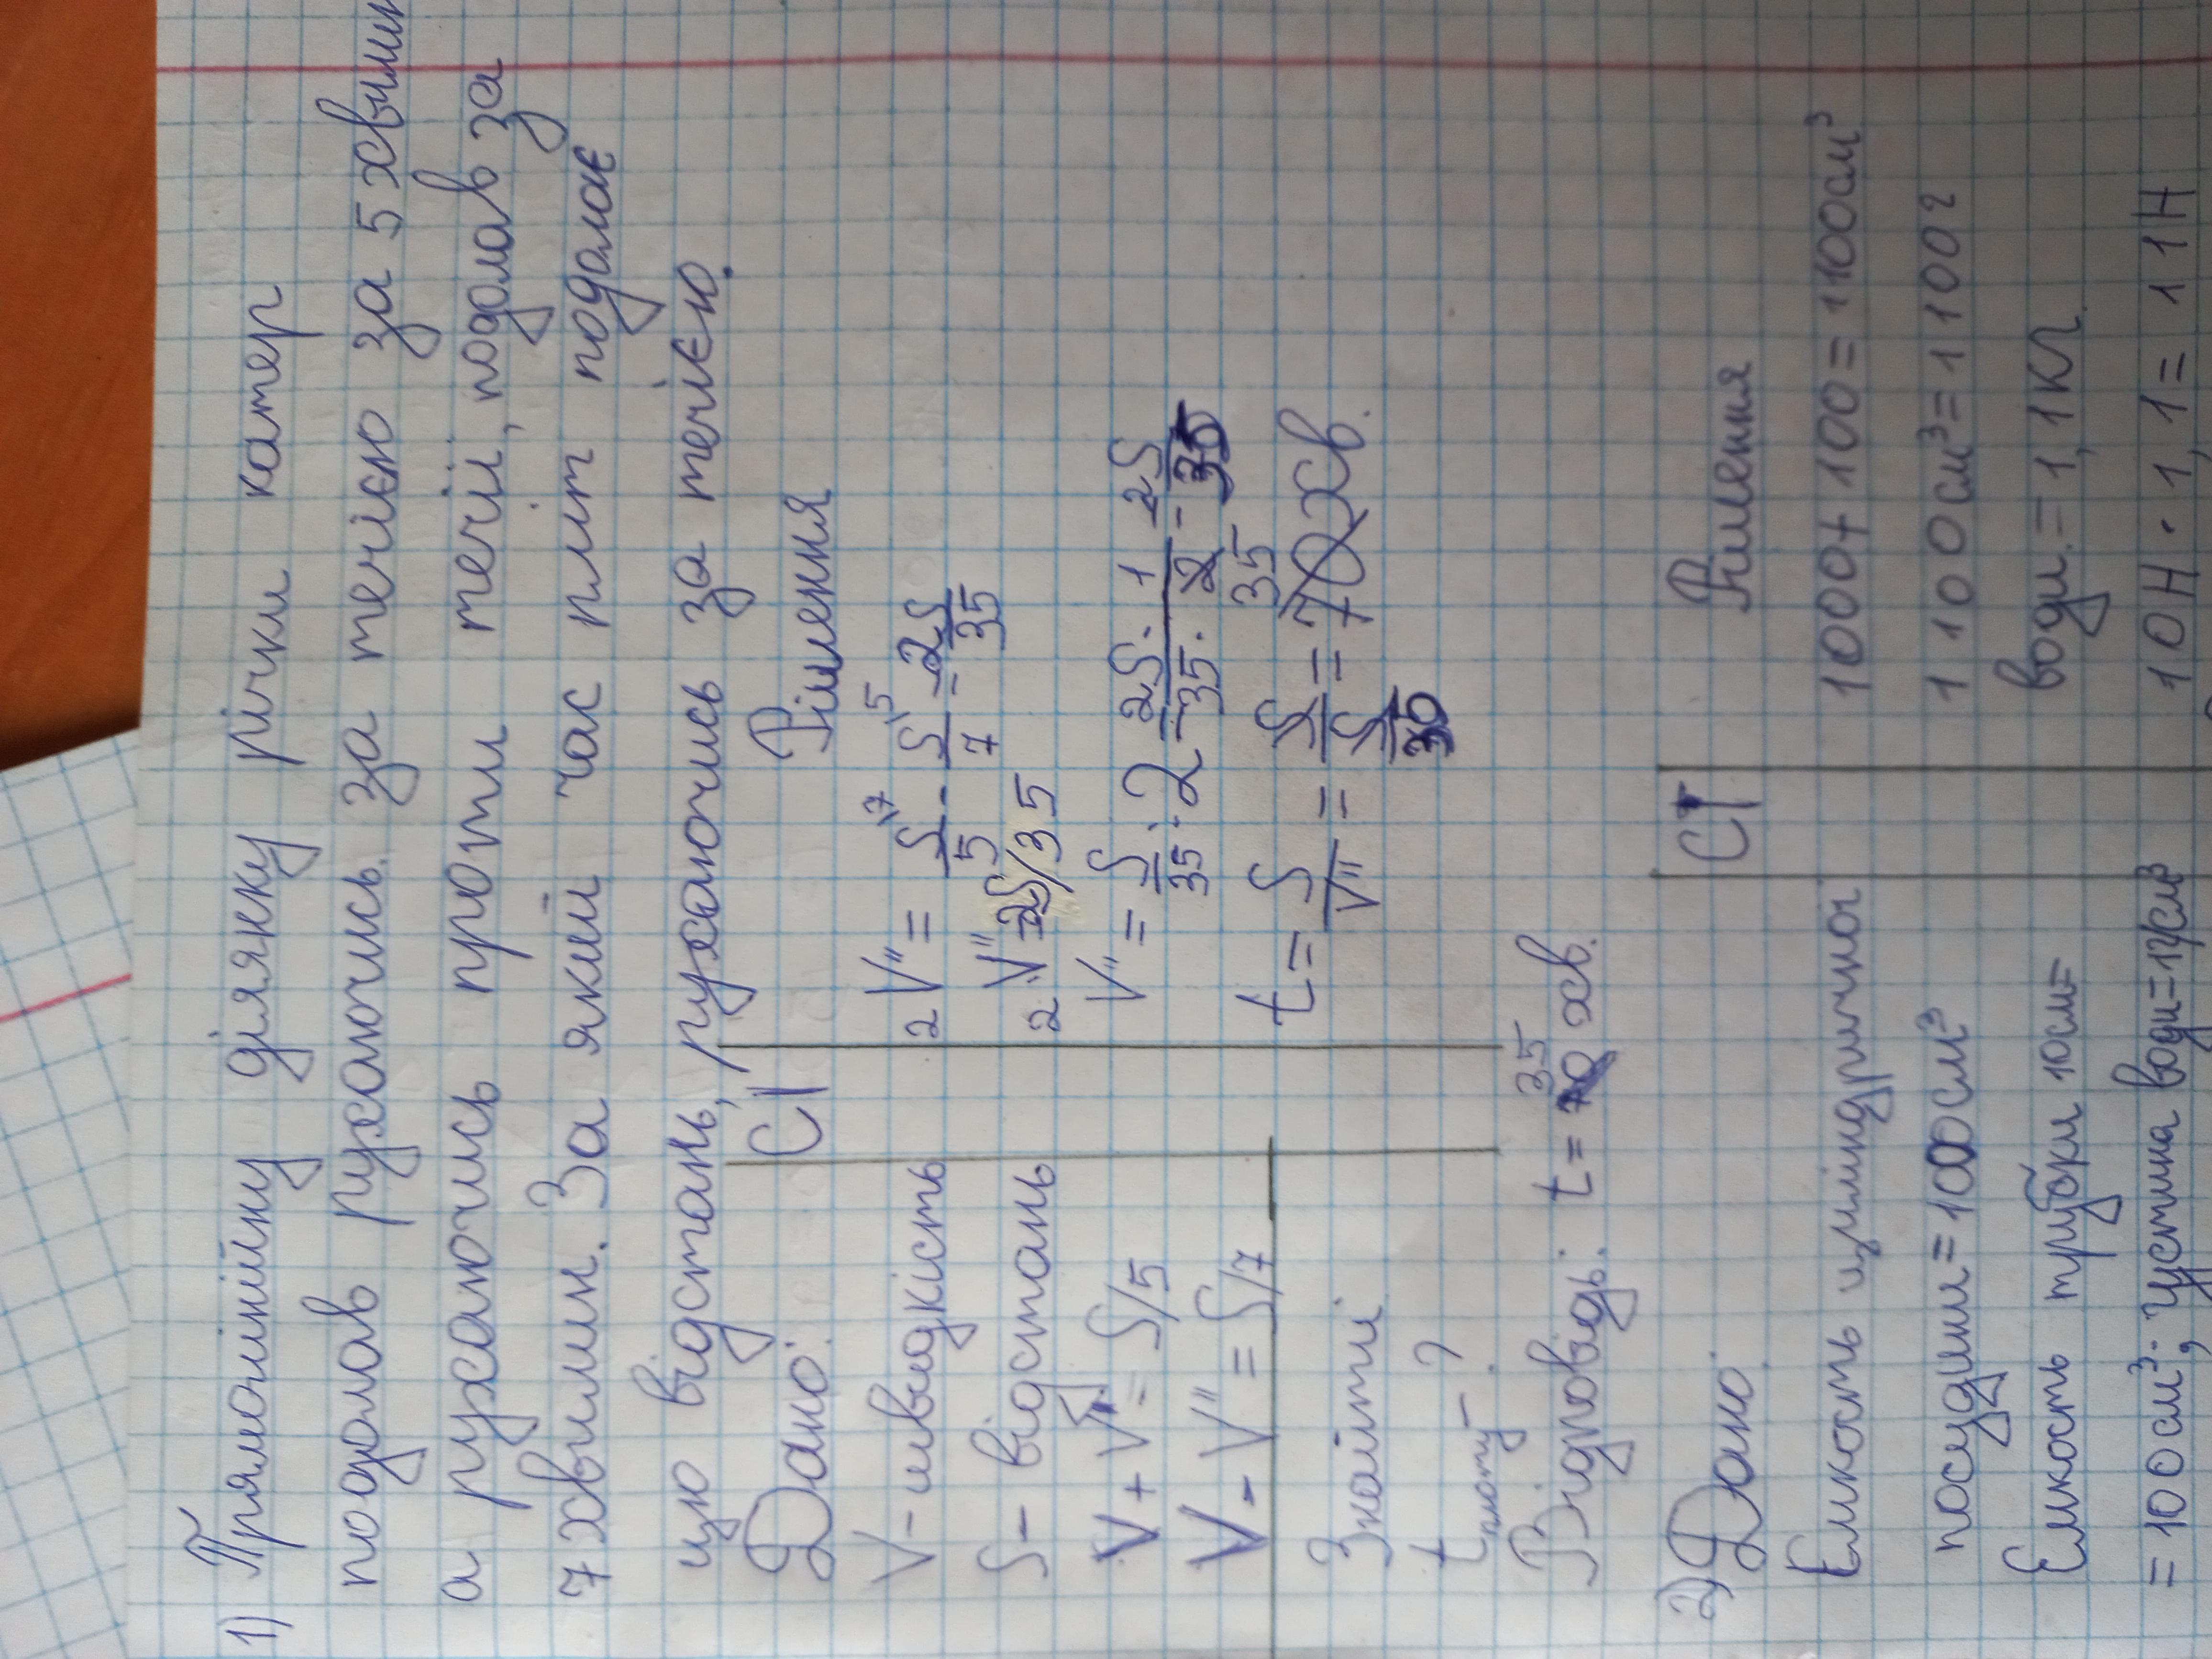 1) Прямолінійну ділянку річки катер
подолав рухаючись за течією за 5 хвилин
а рухаючись проти течії, подолав за
7 хвилин. За який час пліт подолає
цю відстань, рухаючись за течією.
Дано: СІ Рішення
V - швидкість
S - відстань
V + V" = S/5
V - V" = S/7
Знайти
t плоту - ?
2V" = S/5 - S/7 = 2S/35
2V" = 2S/35
V" = S/35 : 2 = 2S · 1/35 · 2 = 2S/35
t = S/V" = S/S/35 = 35 хв.
Відповідь: t = 35 хв.
2) Дано: СІ Рішення
Ємкость циліндричної
посудини = 1000см³
Ємкость трубки 10см=
= 100см³; густина води=1г/см³
1000+100=1100см³
1100см³=1100г
води = 1,1 кг.
10Н · 1,1 = 11Н